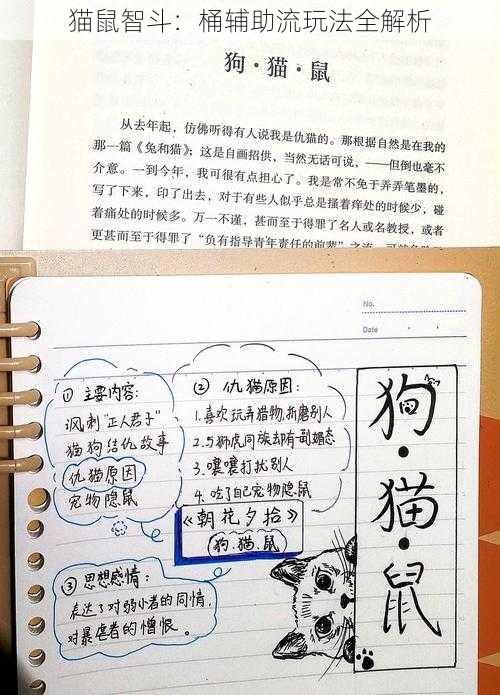 猫鼠智斗：桶辅助流玩法全解析
狗·猫·鼠
从去年起，仿佛听得有人说我是仇猫的。那根据自然是在我的
那一篇《兔和猫》；这是自画招供，当然无话可说，——但倒也毫不
介意。一到今年，我可很有点担心了。我是常不免于弄弄笔墨的，
写了下来，印了出去，对于有些人似乎总是搔着痒处的时候少，碰
着痛处的时候多。万一不谨，甚而至于得罪了名人或名教授，或者
更甚而至于得罪了“负有指导青年责任的前辈”之流，可就危险
No.
Date
① 主要内容：
讽刺“正人君子”
猫狗结仇故事
仇猫原因
宠物隐鼠
② 仇猫原因：
1.喜欢玩弄猎物,折磨别人
2.与狮虎同族却有一副媚态
3.嚷嚷打扰别人
4.吃了自己宠物隐鼠
《朝花夕拾》
狗.猫.鼠
③ 思想感情：
表达了对弱小者的同情,
对暴虐者的憎恨。
狗·猫·鼠